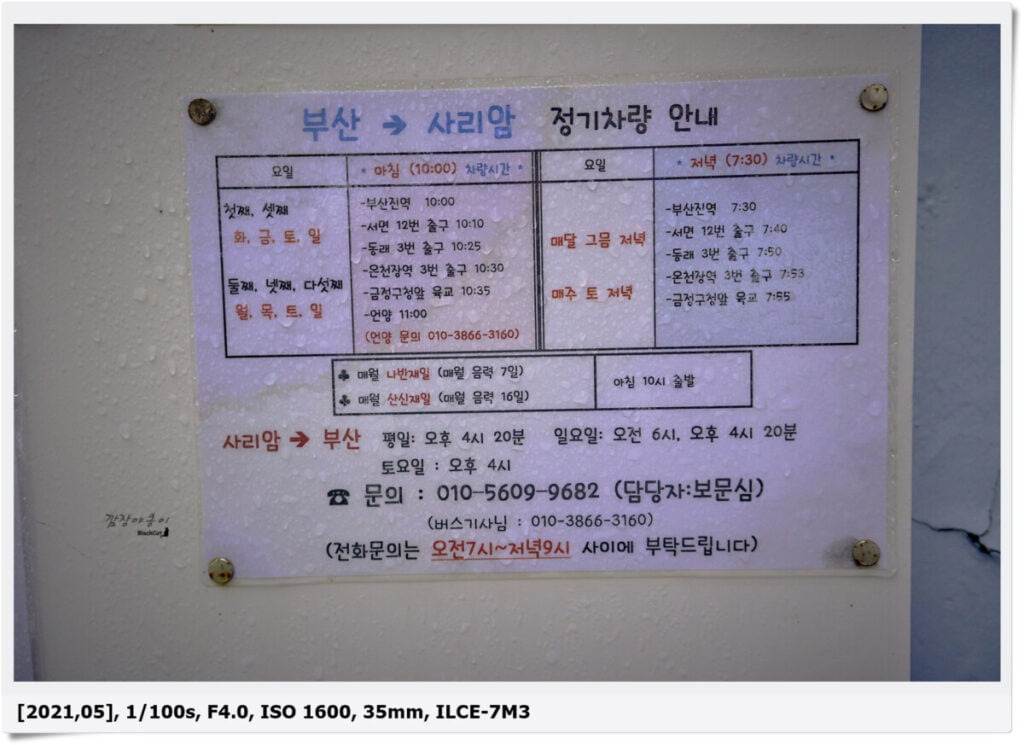 부산 → 사리암 정기차량 안내
요일
* 아침 (10:00) 차량시간 *
첫째, 셋째
화, 금, 토, 일
둘째, 넷째, 다섯째
월, 목, 토, 일
-부산진역 10:00
-서면 12번 출구 10:10
-동래 3번 출구 10:25
-온천장역 3번 출구 10:30
-금정구청앞 육교 10:35
-언양 11:00
(언양 문의 010-3866-3160)
요일
* 저녁 (7:30) 차량시간 *
매달 그믐 저녁
매주 토 저녁
-부산진역 7:30
-서면 12번 출구 7:40
-동래 3번 출구 7:50
-온천장역 3번 출구 7:53
-금정구청앞 육교 7:55
♣ 매월 나반재일 (매월 음력 7일)
♣ 매월 산신재일 (매월 음력 16일)
아침 10시 출발
사리암 → 부산 평일: 오후 4시 20분 일요일: 오전 6시, 오후 4시 20분
토요일 : 오후 4시
☎ 문의 : 010-5609-9682 (담당자:보문심)
(버스기사님 : 010-3866-3160)
(전화문의는 오전7시~저녁9시 사이에 부탁드립니다)
깜장야옹이
BlackCat
[2021,05], 1/100s, F4.0, ISO 1600, 35mm, ILCE-7M3